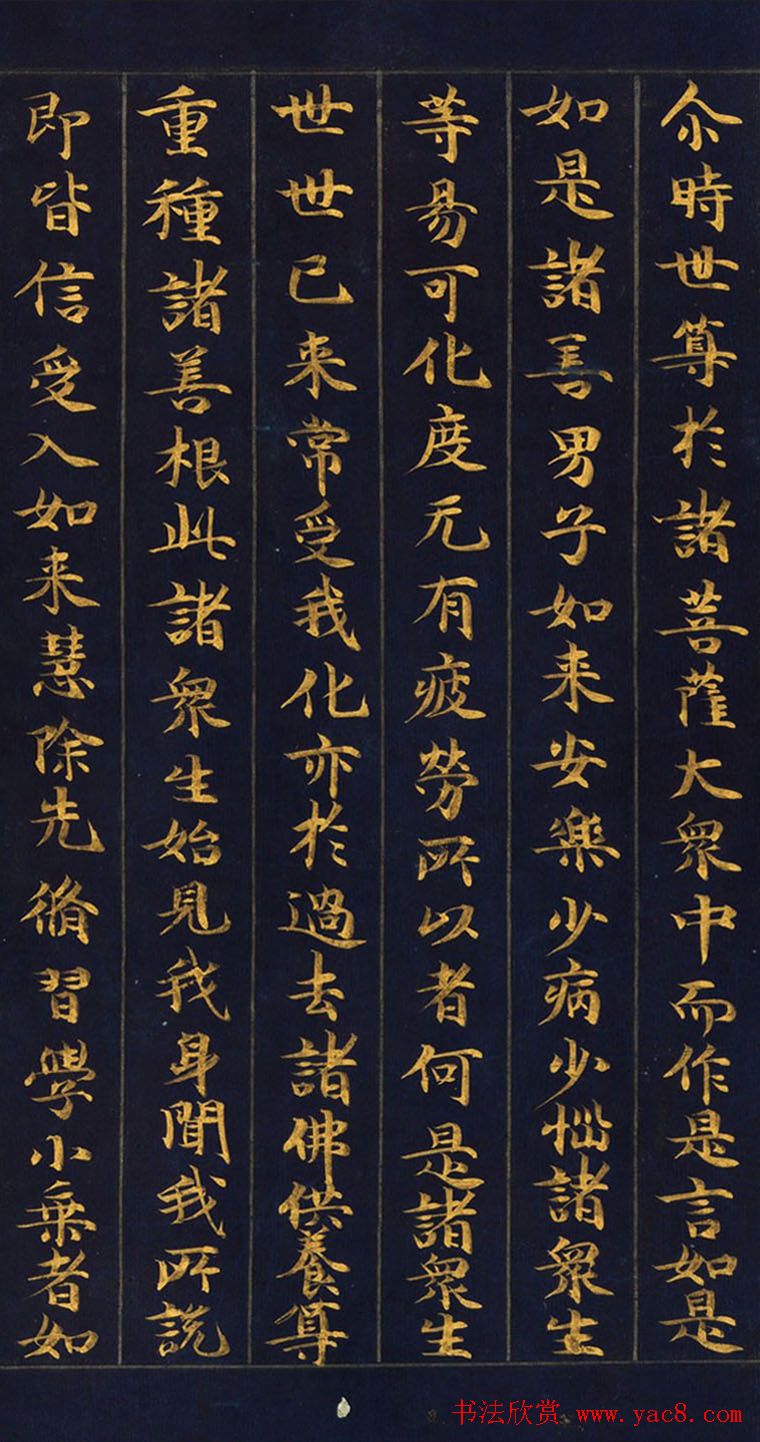 尒時世尊於諸菩薩大衆中而作是言如是
如是諸善男子如来安樂少病少惱諸衆生
等易可化度无有疲勞所以者何是諸衆生
世世已来常受我化亦於過去諸佛供養尊
重種諸善根此諸衆生始見我身聞我所說
即皆信受入如来慧除先脩習學小乗者如
书法欣赏 www.yac8.com